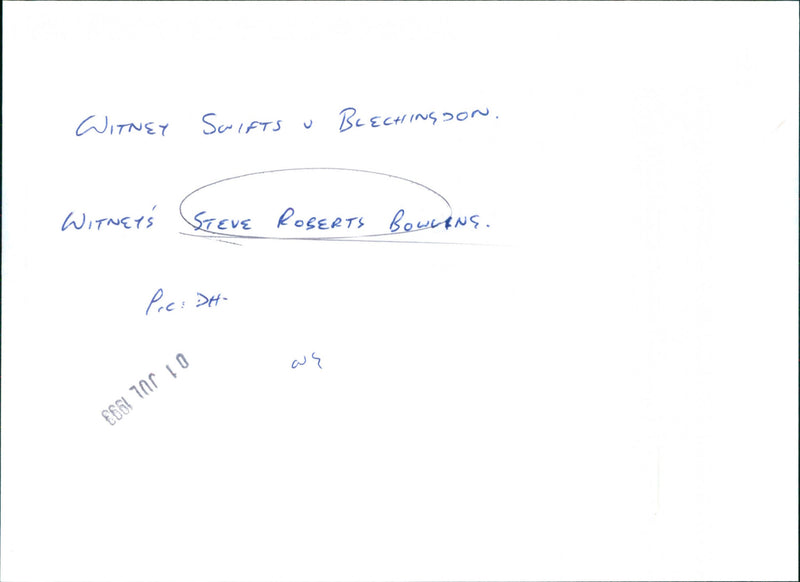 WITNEY SWIFTS V BLECHINGDON.
WITNEY'S STEVE ROBERTS BOWLING.
Pic: DH-
01 JUL 1993
WG